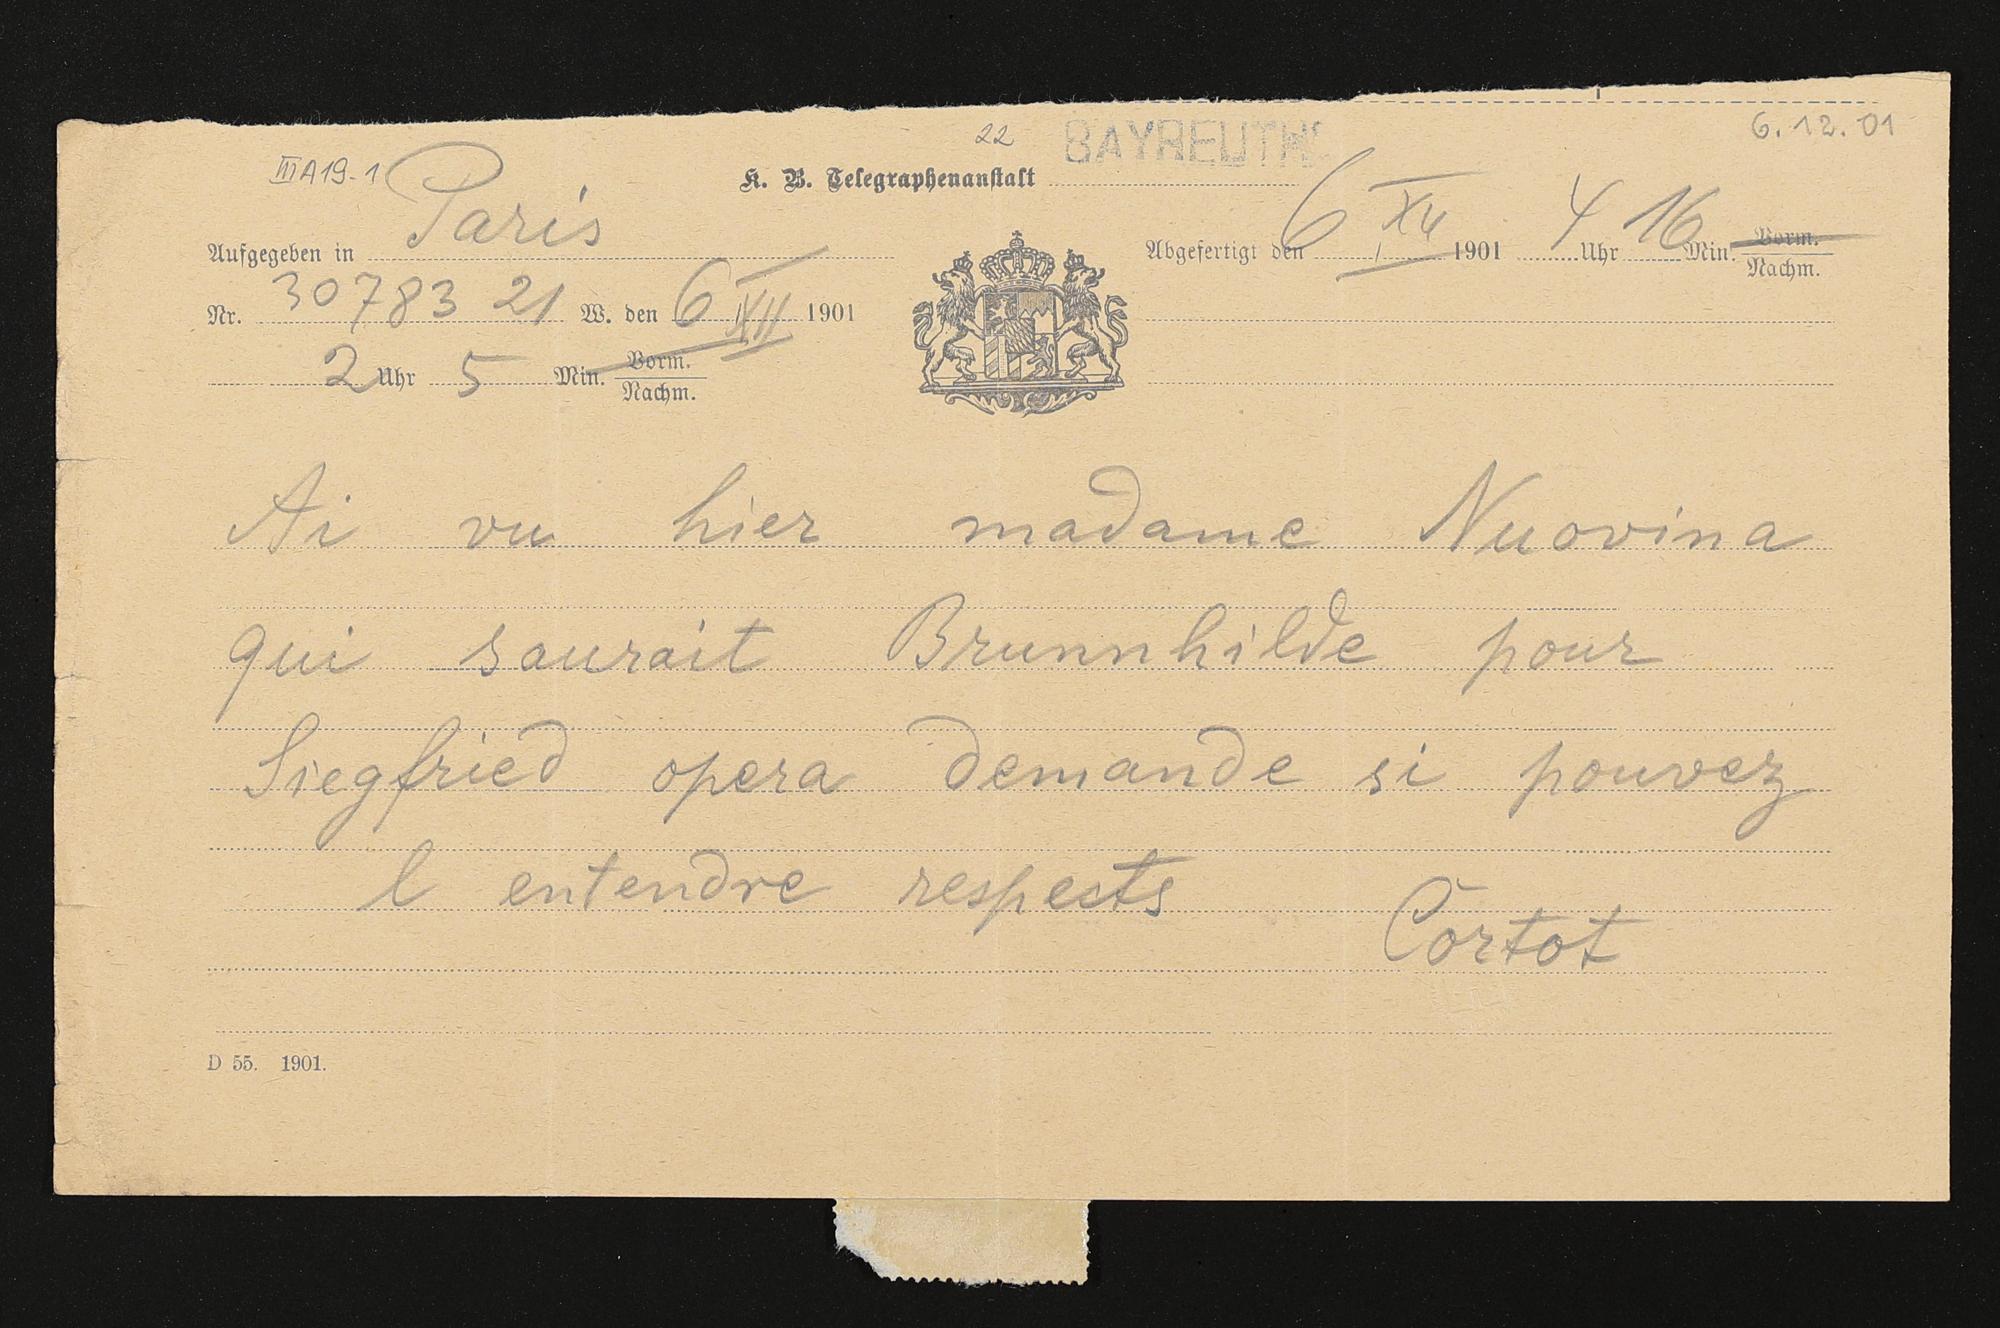 22 BAYREUTH 6.12.01
III A19-1
K. B. Telegraphenanstalt
Aufgegeben in Paris
Abgefertigt den 6 XII 1901 4 Uhr 16 Min. Vorm. Nachm.
Nr. 30783 21 W. den 6 XII 1901
2 Uhr 5 Min. Vorm. Nachm.
Ai vu hier madame Nuovina
qui saurait Brunnhilde pour
Siegfried opera demande si pouvez
l entendre respects Cortot
D 55. 1901.